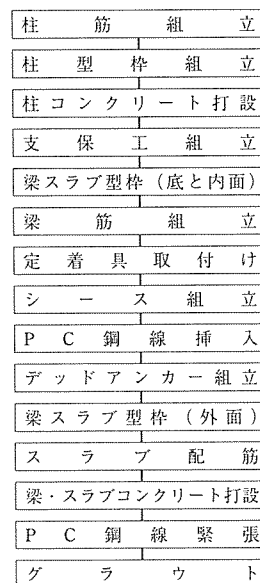 柱筋組立
柱型枠組立
柱コンクリート打設
支保工組立
梁スラブ型枠（底と内面）
梁筋組立
定着具取付け
シース組立
PC鋼線挿入
デッドアンカー組立
梁スラブ型枠（外面）
スラブ配筋
梁・スラブコンクリート打設
PC鋼線緊張
グラウト